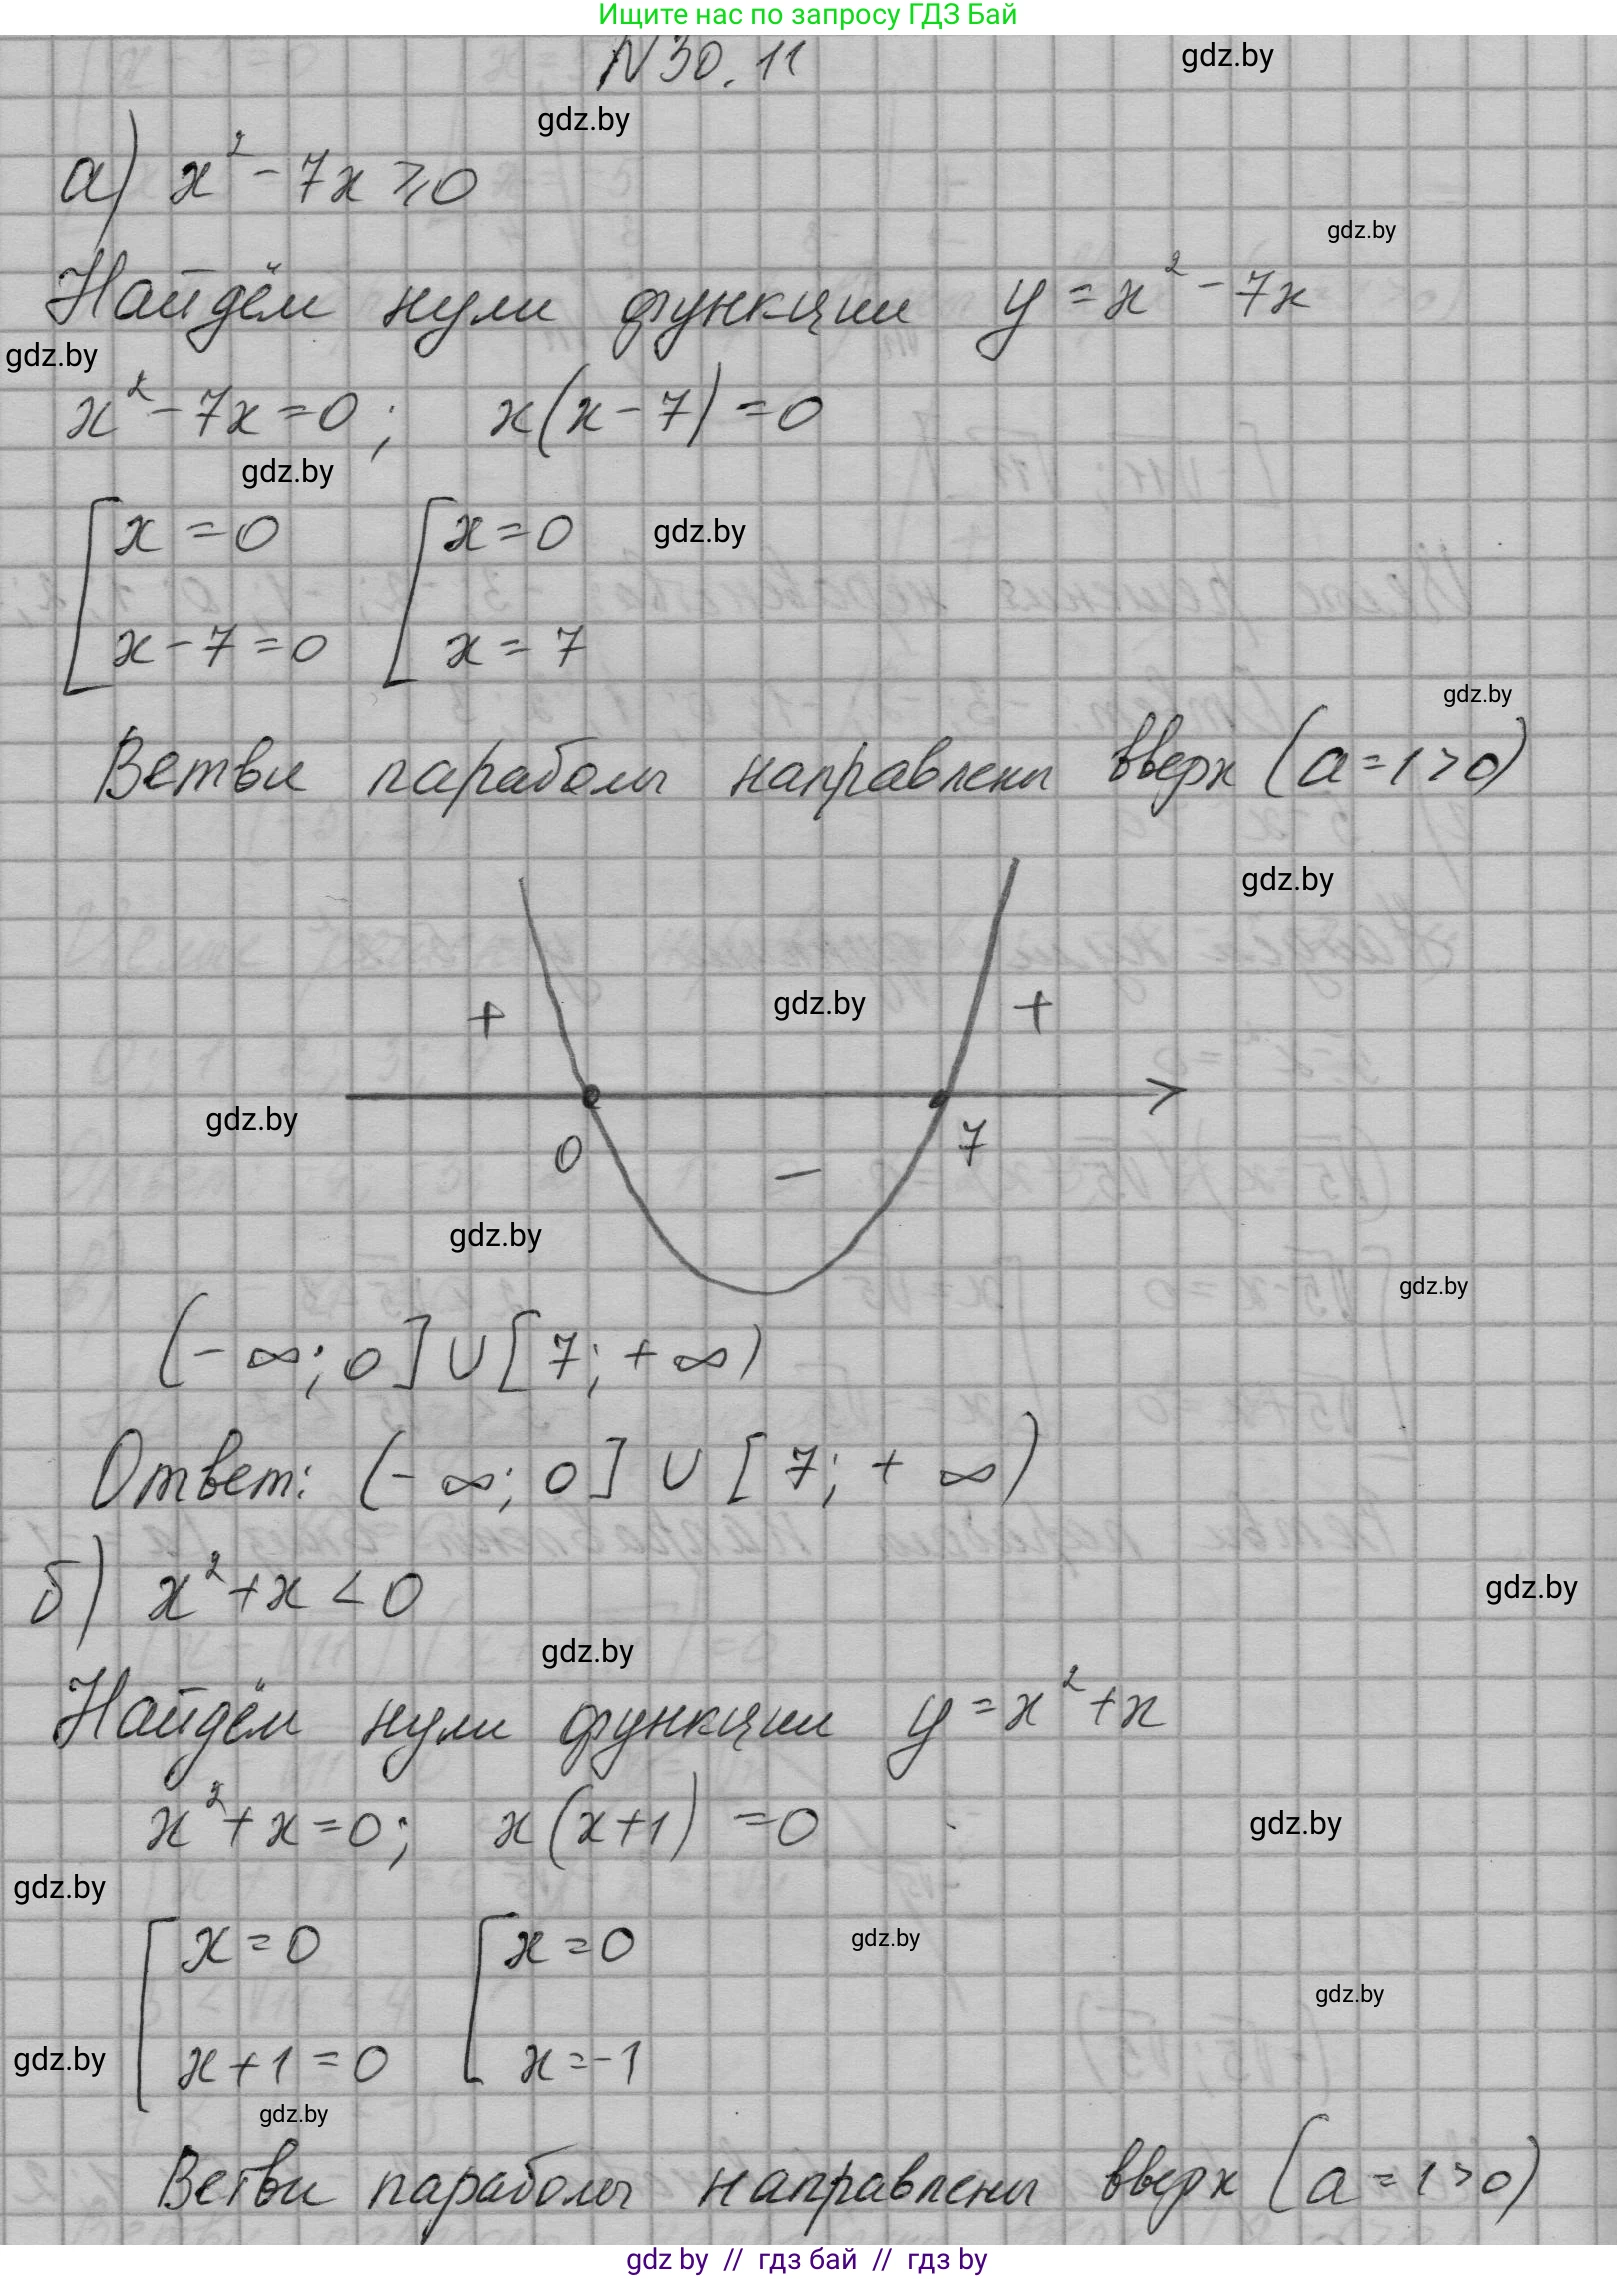 Ищите нас по запросу ГДЗ Бай
N 30.11
gdz.by
gdz.by
а) x² - 7x ⩾ 0
gdz.by
Найдём нули функции y = x² - 7x
gdz.by
x² - 7x = 0; x(x - 7) = 0
gdz.by
x = 0 x = 0
gdz.by
x - 7 = 0 x = 7
gdz.by
Ветви параболы направлены вверх (a = 1 > 0)
gdz.by
+ gdz.by +
gdz.by
0 − 7
gdz.by
gdz.by
(- ∞; 0] ∪ [7; + ∞)
Ответ: (- ∞; 0] ∪ [7; + ∞)
б) x² + x < 0
gdz.by
gdz.by
Найдём нули функции y = x² + x
x² + x = 0; x(x + 1) = 0
gdz.by
gdz.by
x = 0 x = 0
gdz.by
gdz.by
x + 1 = 0 x = -1
gdz.by
gdz.by
Ветви параболы направлены вверх (a = 1 > 0)
gdz by // гдз бай // гдз by